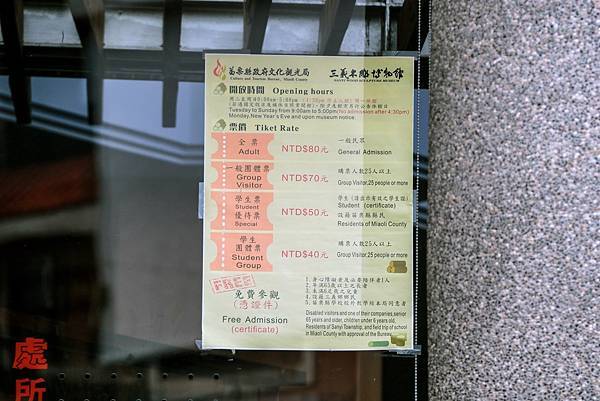 苗栗縣政府文化觀光局
Culture and Tourism Bureau, Miaoli County
三義木雕博物館
SANYI WOOD SCULPTURE MUSEUM
開放時間 Opening hours
Tuesday to Sunday from 9:00am to 5:00pm(No admission after 4:30pm)
Monday,New Year's Eve and upon museum notice.
票價 Tiket Rate
全票
Adult
NTD$80元
一般民眾
General Admission
一般團體票
Group
Visitor
NTD$70元
購票人數25人以上
Group Visitor,25 people or more
學生票
Student
優待票
Special
NTD$50元
學生(請出示有效之學生證)
Student (certificate)
設籍苗栗縣縣民
Residents of Miaoli County
學生
團體票
Student
Group
NTD$40元
購票人數25人以上
Group Visitor,25 people or more
FREE
免費參觀
(憑證件)
Free Admission
(certificate)
1.身心障礙者及必要陪伴者1人
2.年滿65歲以上之長者
3.未滿6足歲之兒童
4.設籍三義鄉鄉民
5.苗栗縣學校校外教學經本局同意者
Disabled visitors and one of their companies,senior
65 years and older, children under 6 years old,
Residents of Sanyi Township, and field trip of school
in Miaoli County with approval of the Bureau.
處
所